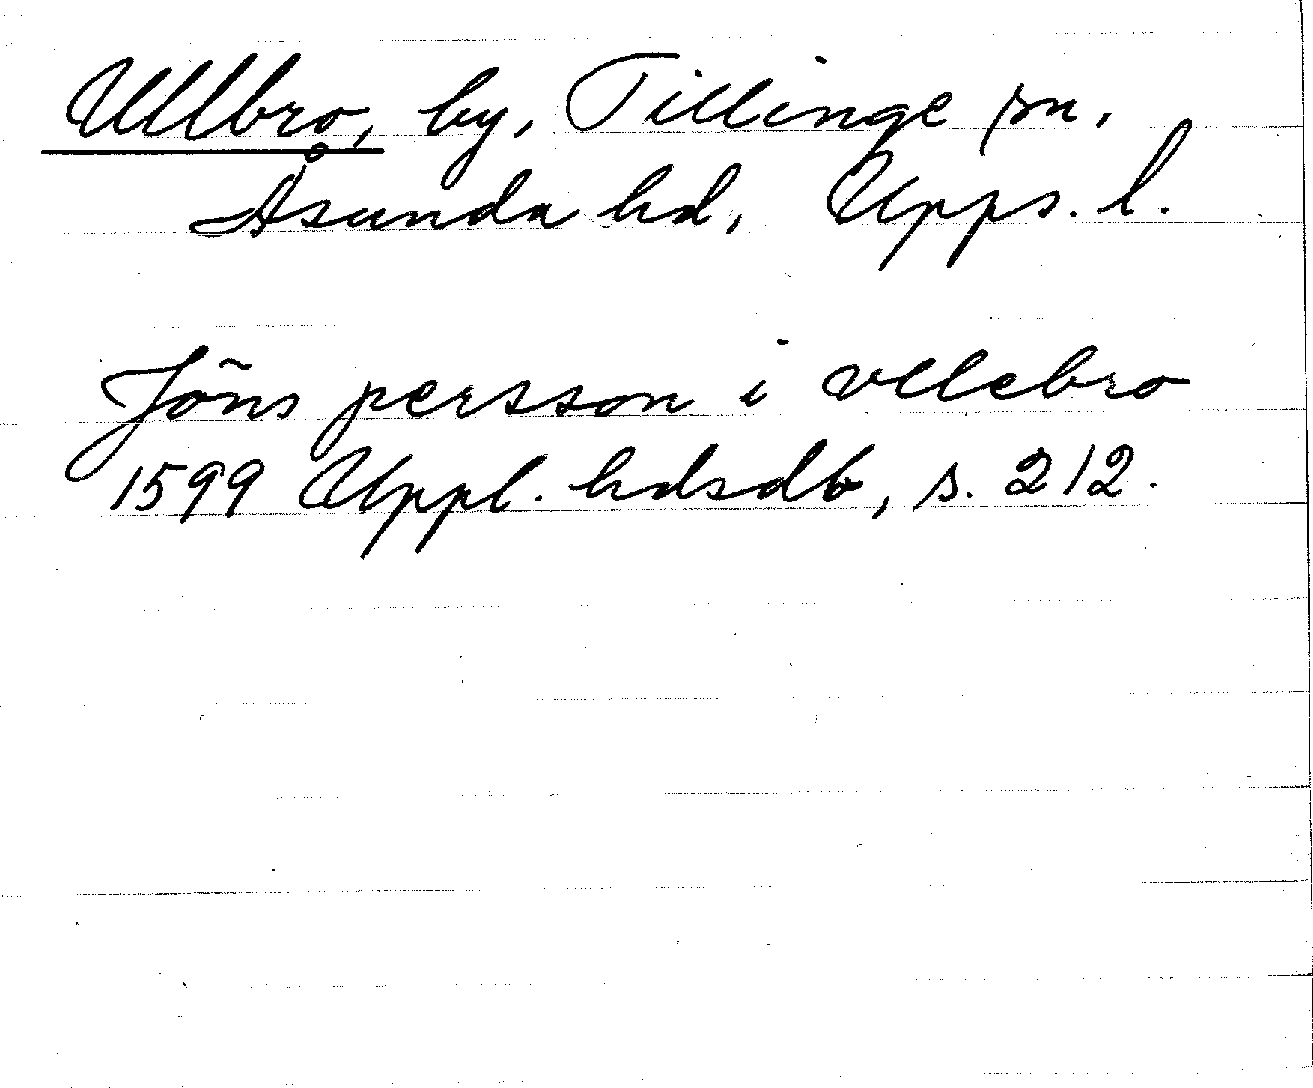 Ullbro, by, Tillinge sn.
Åsunda hd, Upps. l.
Jöns persson i vllebro
1599 Uppl. hdsdb, s. 212.